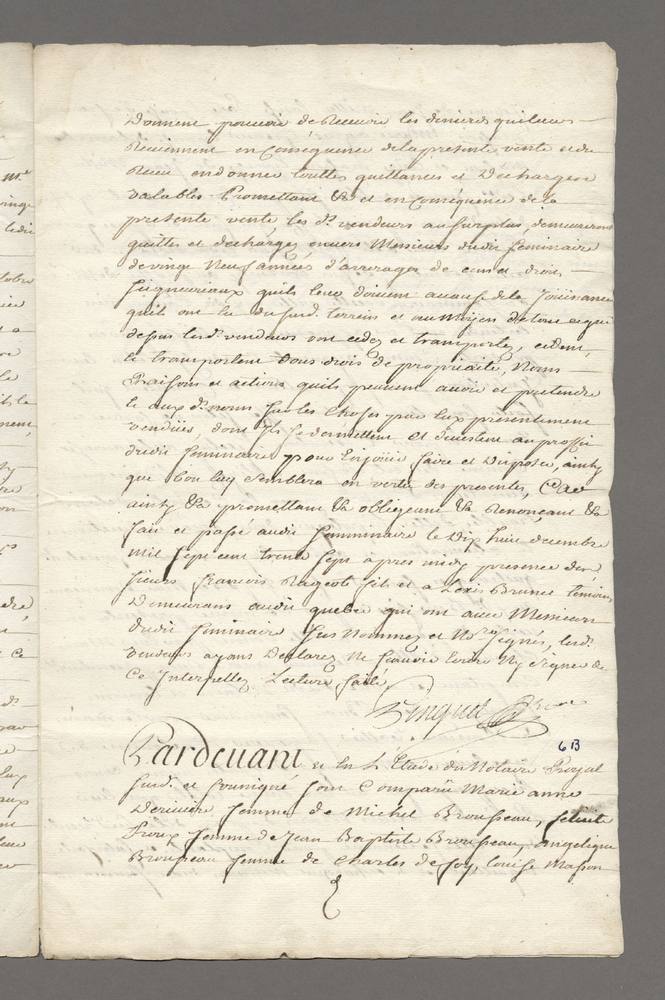 Donnent pouvoir de Recevoir les deniers qui leurs
Reviennent en Consequence de la presente vente et du
Receu en donner touttes quittances et Decharges
valables Promettant &a et en Consequence de la
presente vente les d. vendeurs au surplus demeureront
quittes et dechargez envers Messieurs dudit Seminaire
de vingt Neuf années d'arrerages de cens et droits
Seigneuriaux qu'ils leur doivent a cause de la Joüissance
qu'ils ont du susd. terrein et au moyen de tout ce qui
dessus lesd. vendeurs ont cedez et transportez, cedent
et transportent tous droits de proprieté, Noms
Raisons et actions qu'ils peuvent avoir et pretendre
aux d. noms sur les choses par Eux presentement
vendües dont Ils se demettent et devestent au proffit
dudit Seminaire pour En joüir faire et Disposer, ainsy
que bon luy Semblera en vertu des presentes, Car
ainsy &a promettant &a obligeant &a Renonçant &a
fait et passé audit Seminaire le Dix huit decembre
Mil sept cent trente sept apres midy presence des
sieurs François Rageot fils et alexis Brunet temoins
Demeurans audit quebec qui ont avec Messieurs
dudit Seminaire sus Nommez et Nre signés, lesd.
vendeurs ayans Declarez Ne sçavoir Ecrire Ny signer de
Ce Interpellez Lecture faite
Pinguet
6B
Pardevant et En L'Etude du Notaire Royal
susd. et sousigné sont Comparüe Marie anne
femme de Michel Brousseau, felicité
Proux femme de Jean Baptiste Brousseau, angelique
Brousseau femme de Charles Defoy, louise Masson